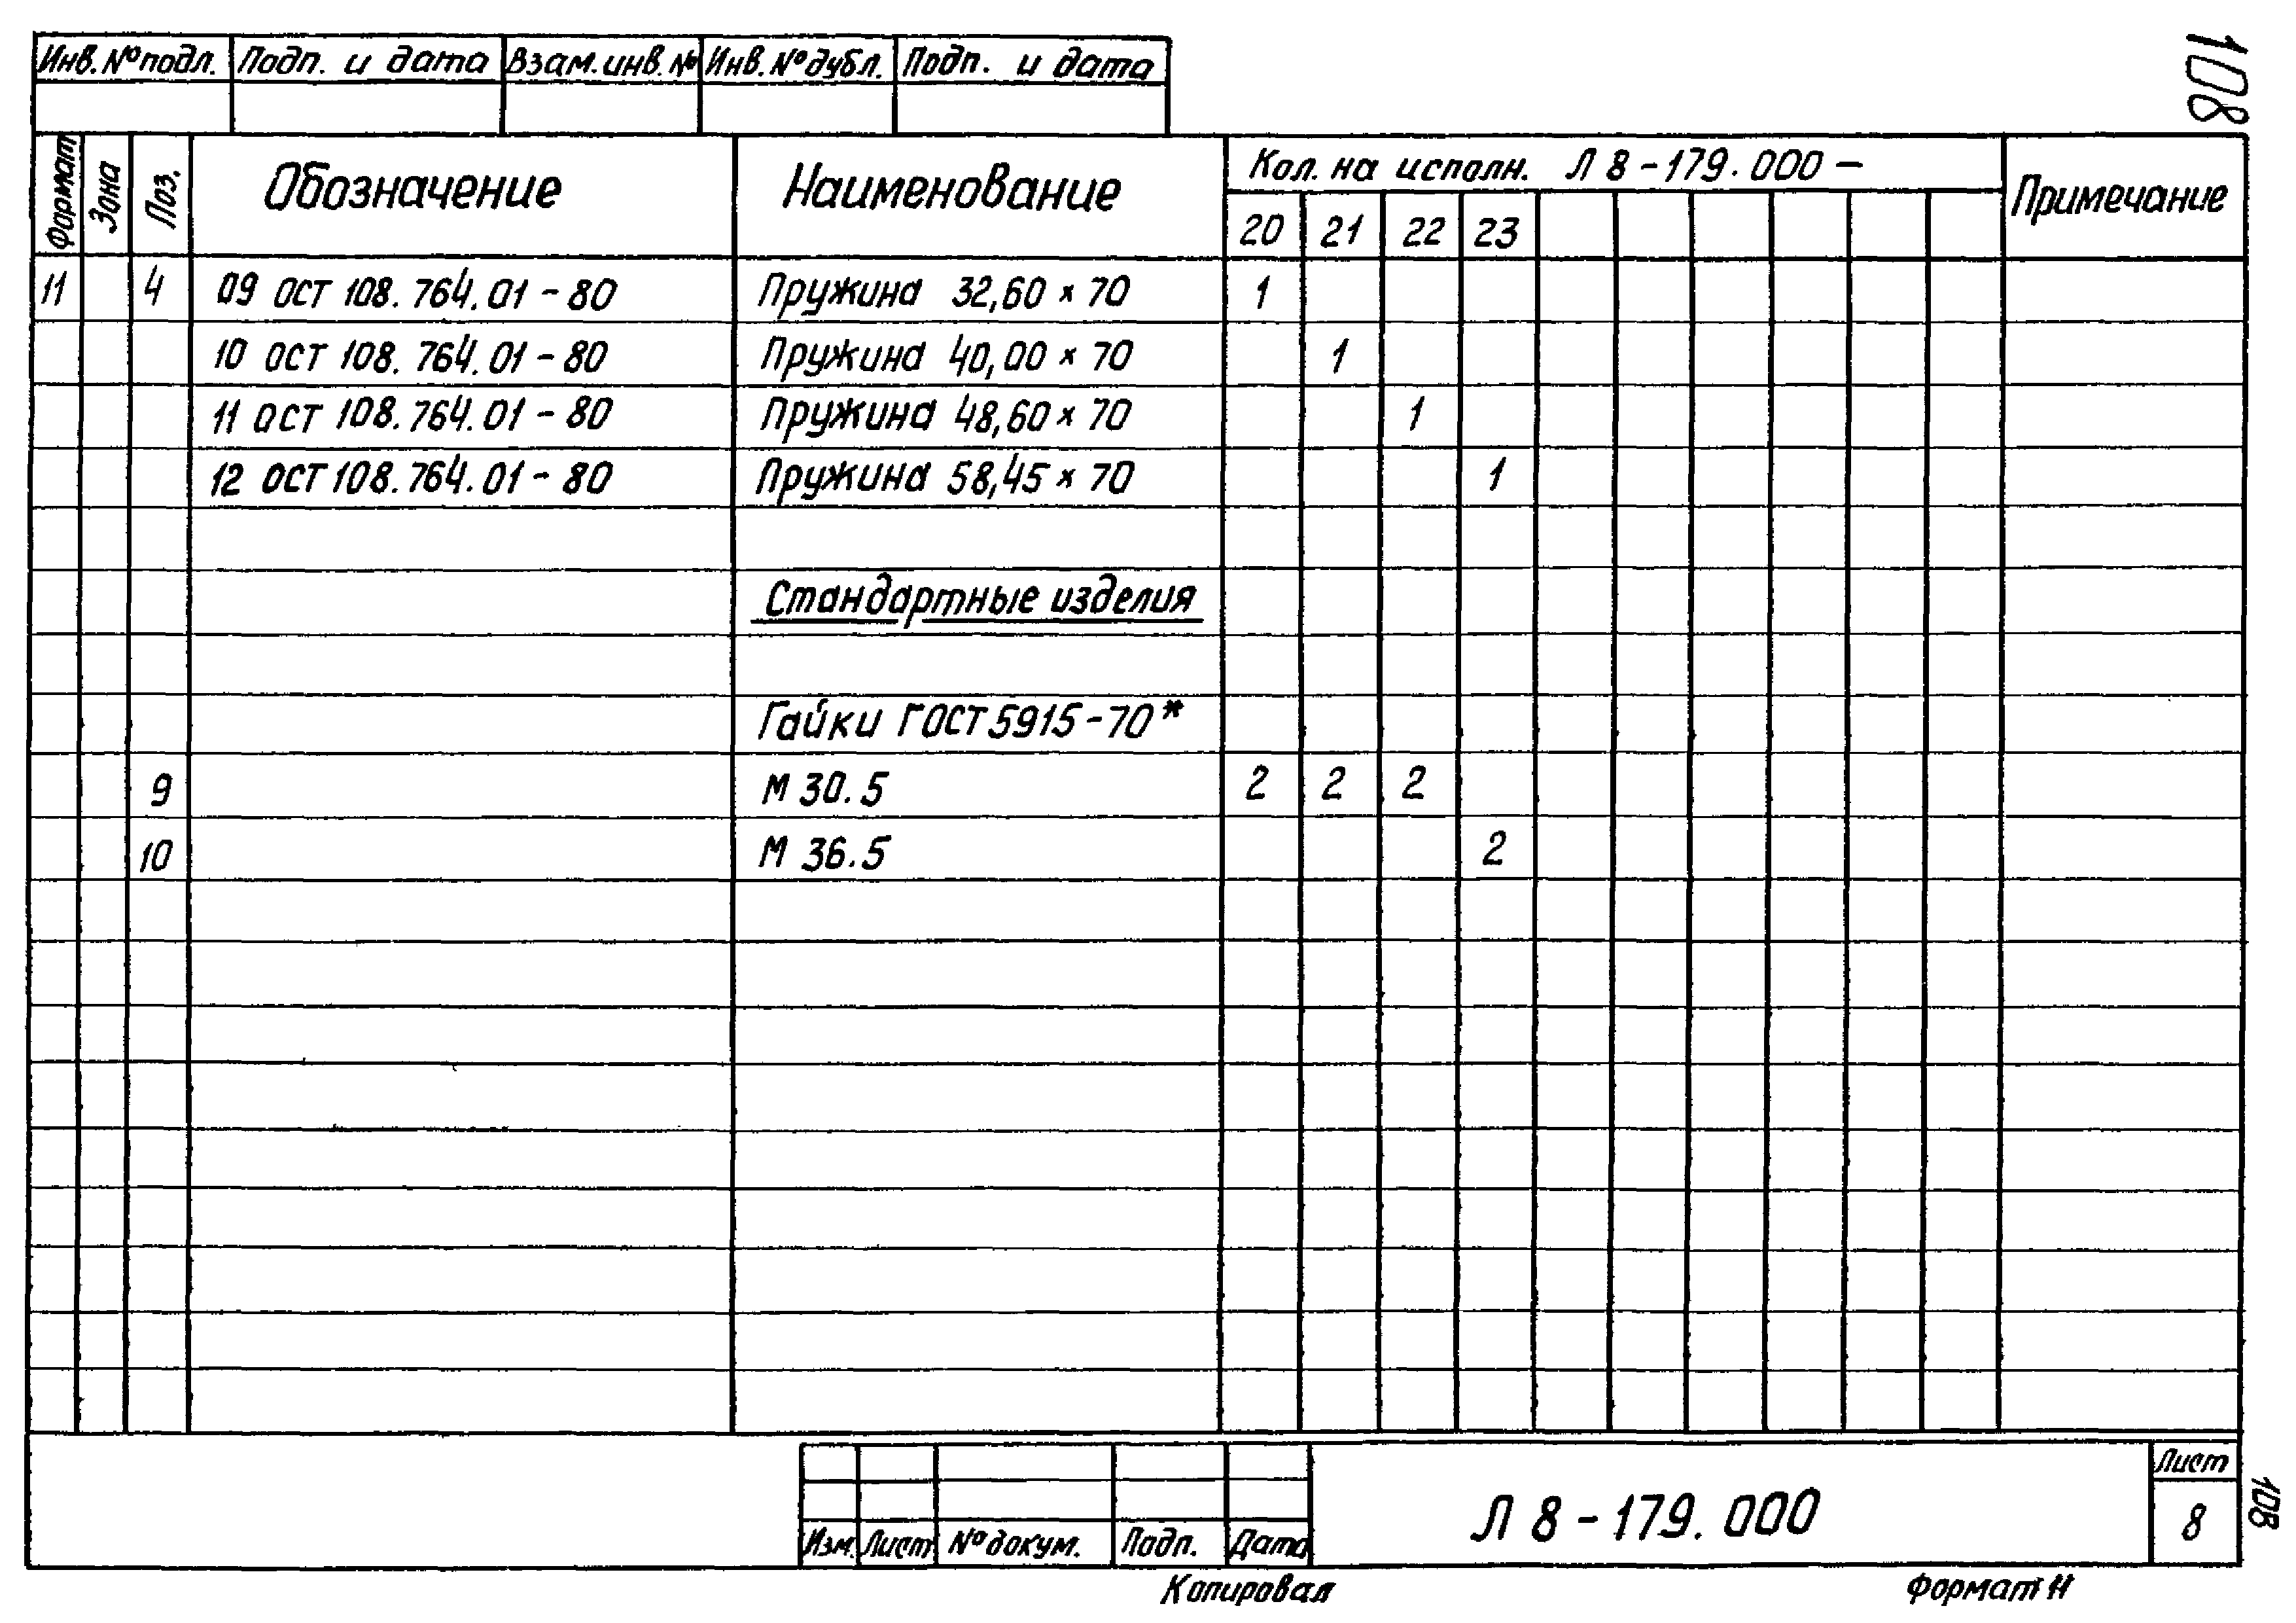 108
Инв. № подл. Подп. и дата Взам. инв. № Инв. № дубл. Подп. и дата
Формат Зона Поз. Обозначение Наименование Кол. на исполн. Л 8 - 179. 000 - Примечание
20 21 22 23
11 4 09 ОСТ 108. 764. 01 - 80 Пружина 32,60 × 70 1
10 ОСТ 108. 764. 01 - 80 Пружина 40,00 × 70 1
11 ОСТ 108. 764. 01 - 80 Пружина 48,60 × 70 1
12 ОСТ 108. 764. 01 - 80 Пружина 58,45 × 70 1
Стандартные изделия
Гайки ГОСТ 5915 - 70*
9 М 30. 5 2 2 2
10 М 36. 5 2
Изм. Лист № докум. Подп. Дата
Л 8 - 179. 000
Лист
8
108
Копировал Формат 11